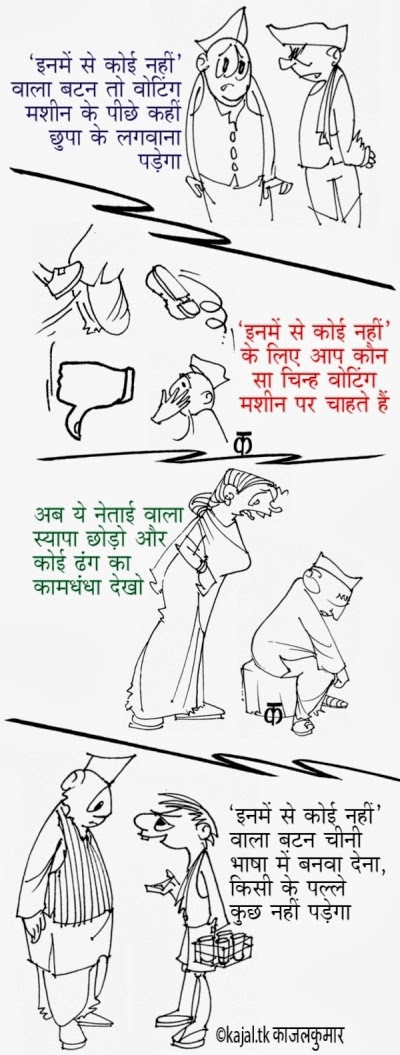 ‘इनमें से कोई नहीं’
वाला बटन तो वोटिंग
मशीन के पीछे कहीं
छुपा के लगवाना
पड़ेगा
‘इनमें से कोई नहीं’
के लिए आप कौन
सा चिन्ह वोटिंग
मशीन पर चाहते हैं
क
अब ये नेताई वाला
स्यापा छोड़ो और
कोई ढंग का
कामधंधा देखो
क
‘इनमें से कोई नहीं’
वाला बटन चीनी
भाषा में बनवा देना,
किसी के पल्ले
कुछ नहीं पड़ेगा
©kajal.tk काजलकुमार